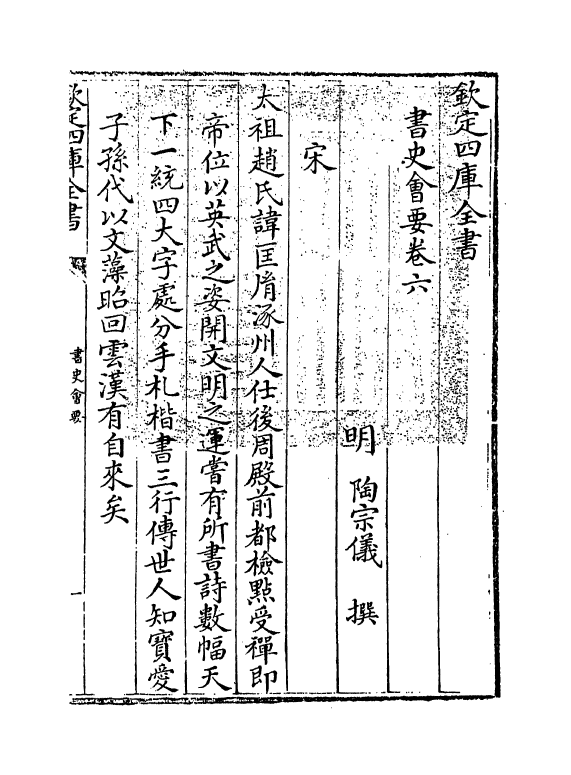 欽定四庫全書
書史會要卷六
明 陶宗儀 撰
宋
太祖趙氏諱匡胤涿州人仕後周殿前都檢點受禪即
帝位以英武之姿開文明之運嘗有所書詩數幅天
下一統四大字處分手札楷書三行傳世人知寶愛
子孫代以文藻昭回雲漢有自來矣
欽定四庫全書
書史會要
一